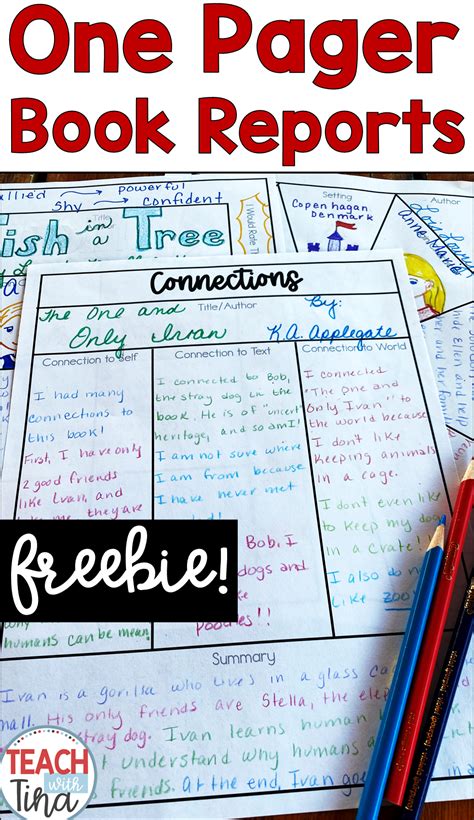 One Pager
Book Reports
allied
powerful
shy
confident
Title
Fish in a Tree
I Would Rate
Setting
Copenhagan
Denmark
Author
Lois Lowry
Anne Marie
Connections
Title/Author
The One and
Only Ivan
By:
K.A. Applegate
Connection to Self
I had many
connections to
this book!
First, I have only
2 good friends
like Ivan, and
like me they are
why
humans can be mean!
Connection to Text
I connected to Bob,
the stray dog in the
book. He is of "uncert
heritage, and so am I!
I am not sure where
I am from because
I have never met
Bob, I
dogs and
poodles!!
Connection to World
I connected
"The one and
Only Ivan" to
the world because
I don't like
keeping animals
in a cage.
I don't even like
to keep my dog
in a crate.
I also do
like zoos
freebie!
Summary
Ivan is a gorilla who lives in a glass ca
mall. His only friends are Stella, the elep
stray dog. Ivan learns human
t understand why humans
friends. At the end, Ivan goe
TEACH
with
Tina